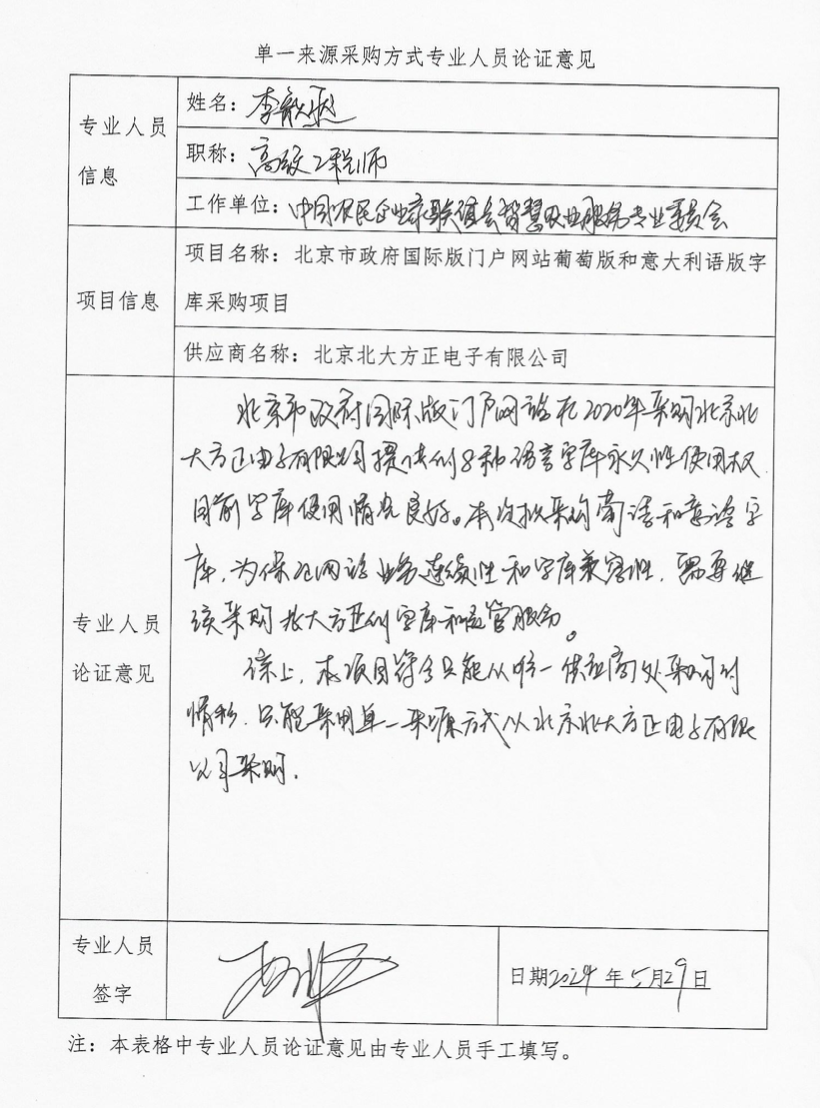 单一来源采购方式专业人员论证意见
专业人员
信息
姓名：李
职称：高级工程师
工作单位：中国农民企业家联谊会智慧农业服务专业委员会
项目信息
项目名称：北京市政府国际版门户网站葡萄版和意大利语版字
库采购项目
供应商名称：北京北大方正电子有限公司
专业人员
论证意见
北京市政府国际版门户网站在2020年采购北京北
大方正电子有限公司提供的8种语言字库永久性使用权
目前字库使用情况良好。本次拟采购葡语和意语字
库，为保证网站业务连续性和字库兼容性，需要继
续采购北大方正的字库和运营服务。
综上，本项目符合只能从唯一供应商处采购的
情形，只能采用单一来源方式从北京北大方正电子有限
公司采购。
专业人员
签字
日期2024年5月29日
注：本表格中专业人员论证意见由专业人员手工填写。